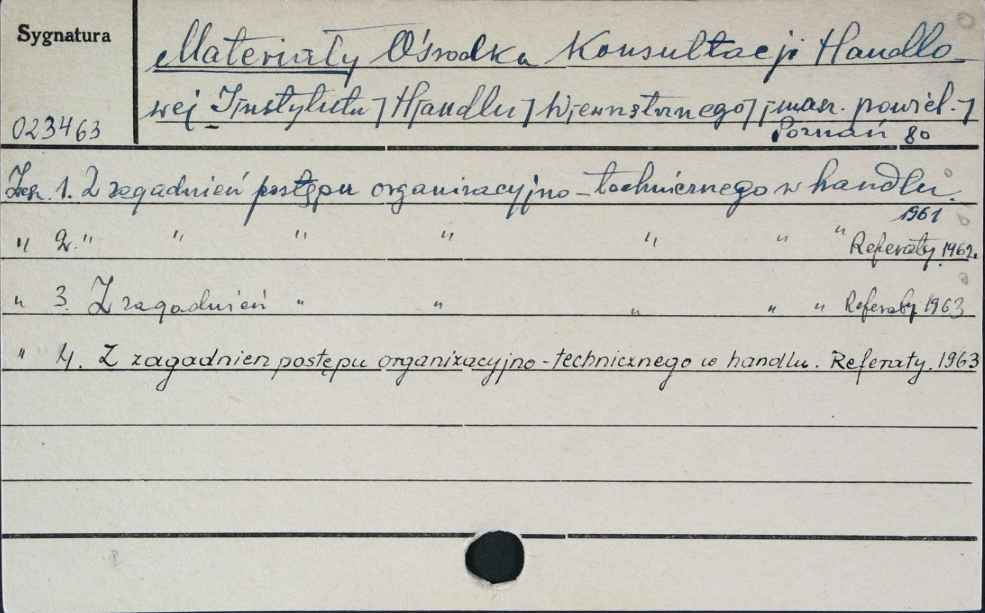 Sygnatura
023463
Materiały Ośrodka Konsultacji Handlo-
wej I/nstytutu/ H/andlu/ W/ewnętrznego/ /masz. powiel./
Poznań 80
Zesz. 1. Z zagadnień postępu organizacyjno-technicznego w handlu.
1961
" 2. " " " " " " " Referaty 1962.
" 3. Z zagadnień " " " " " Referaty 1963
" 4. Z zagadnień postępu organizacyjno-technicznego w handlu. Referaty. 1963